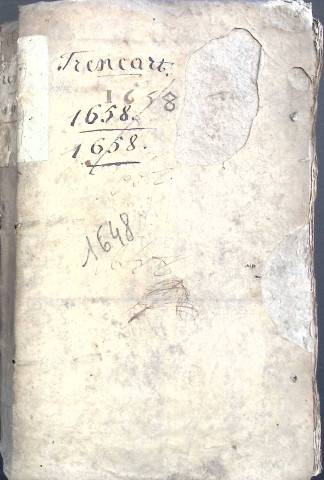 Trencart.
1658
1658.
1658.
1648